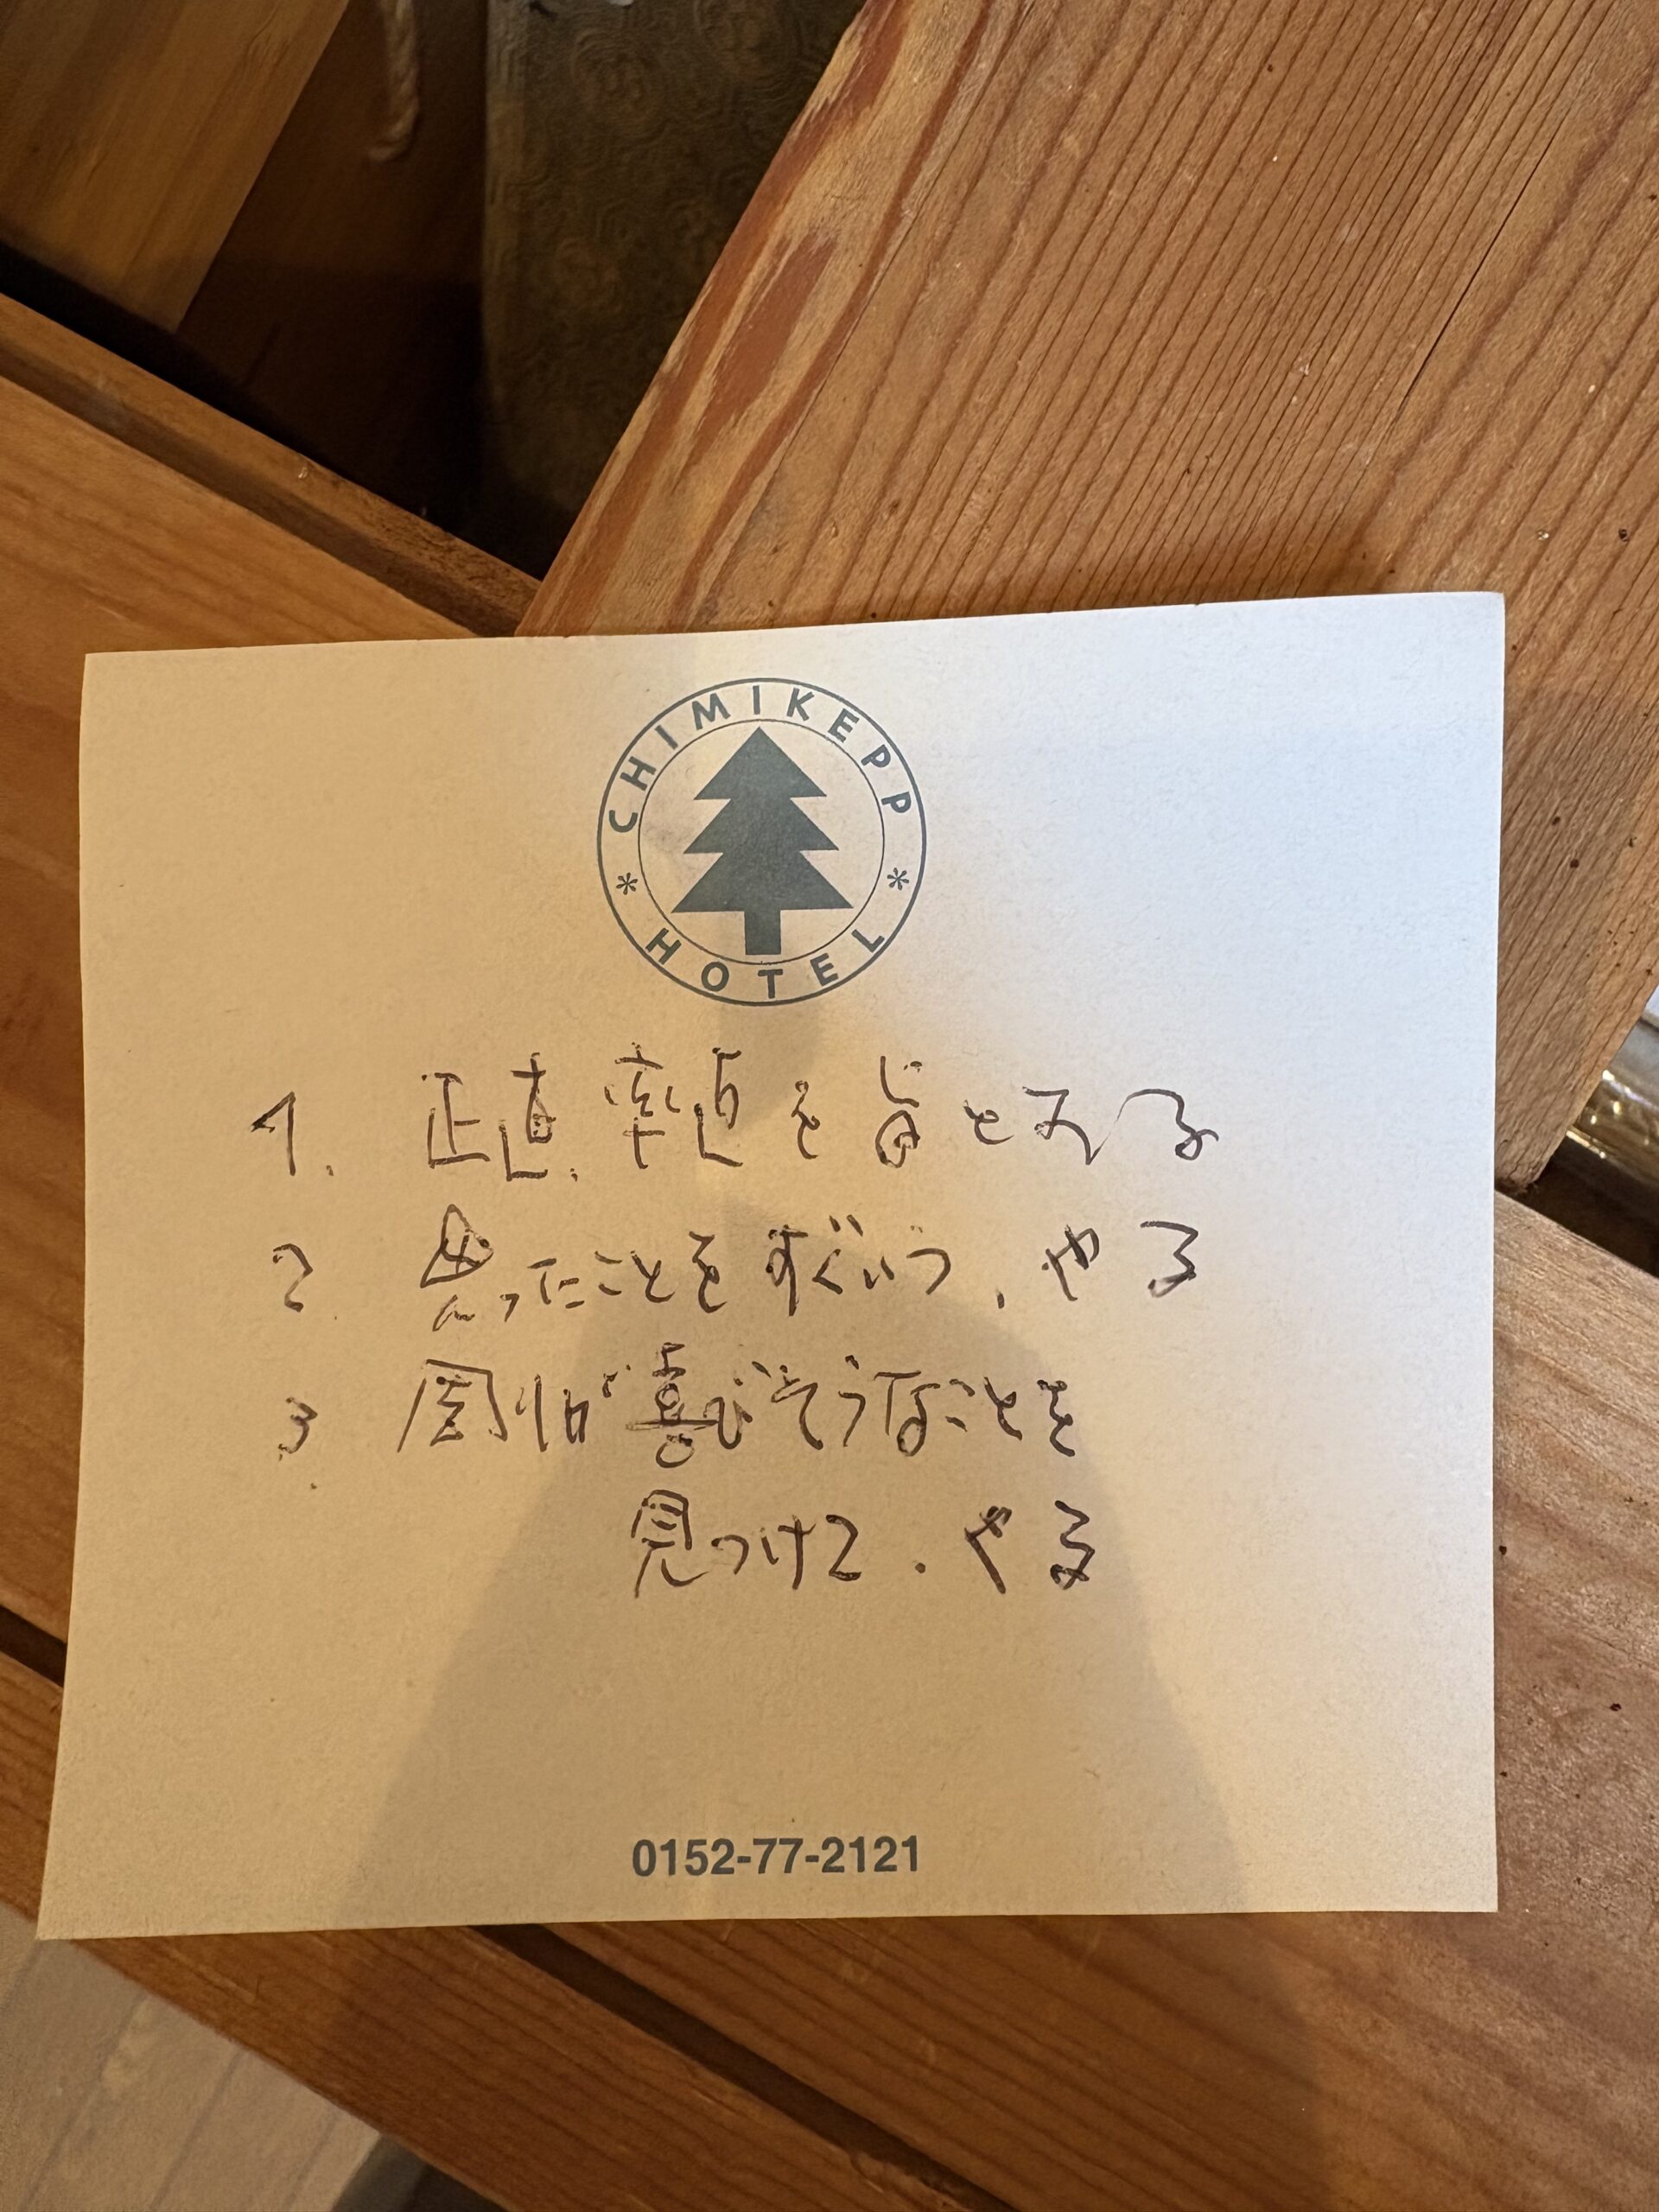 CHIMIKEPP
* HOTEL *
1. 正直、率直を旨とする
2. 思ったことをすぐいう、やる
3. 周りが喜びそうなことを
見つけて、やる
0152-77-2121